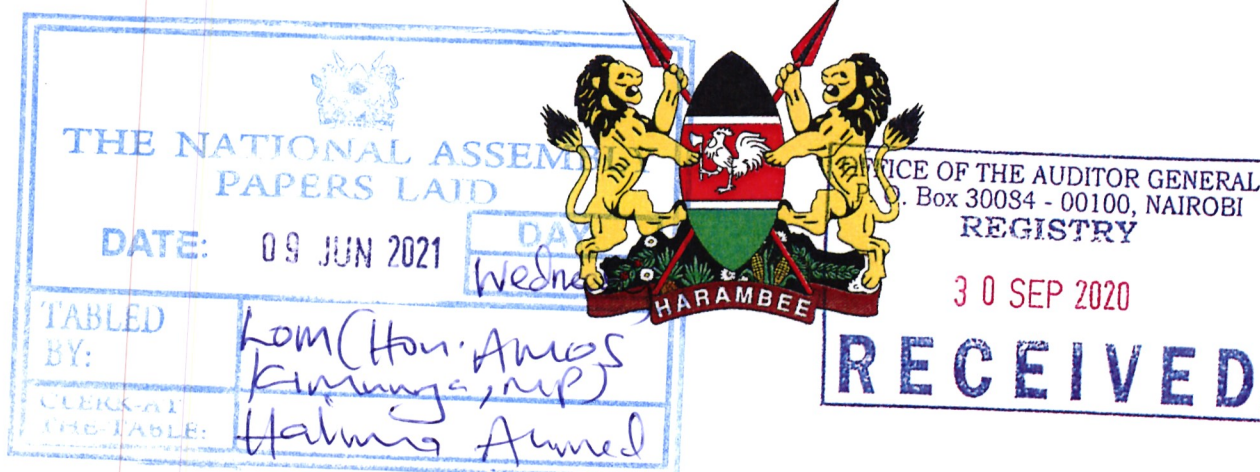 THE NATIONAL ASSEMBLY
PAPERS LAID
DATE: 09 JUN 2021
DAY
Wednes
TABLED BY:
Lom (Hon. Amos Kimunya, MP)
CLERK-AT THE-TABLE:
Halima Ahmed
HARAMBEE
OFFICE OF THE AUDITOR GENERAL
P.O. Box 30084 - 00100, NAIROBI
REGISTRY
30 SEP 2020
RECEIVED